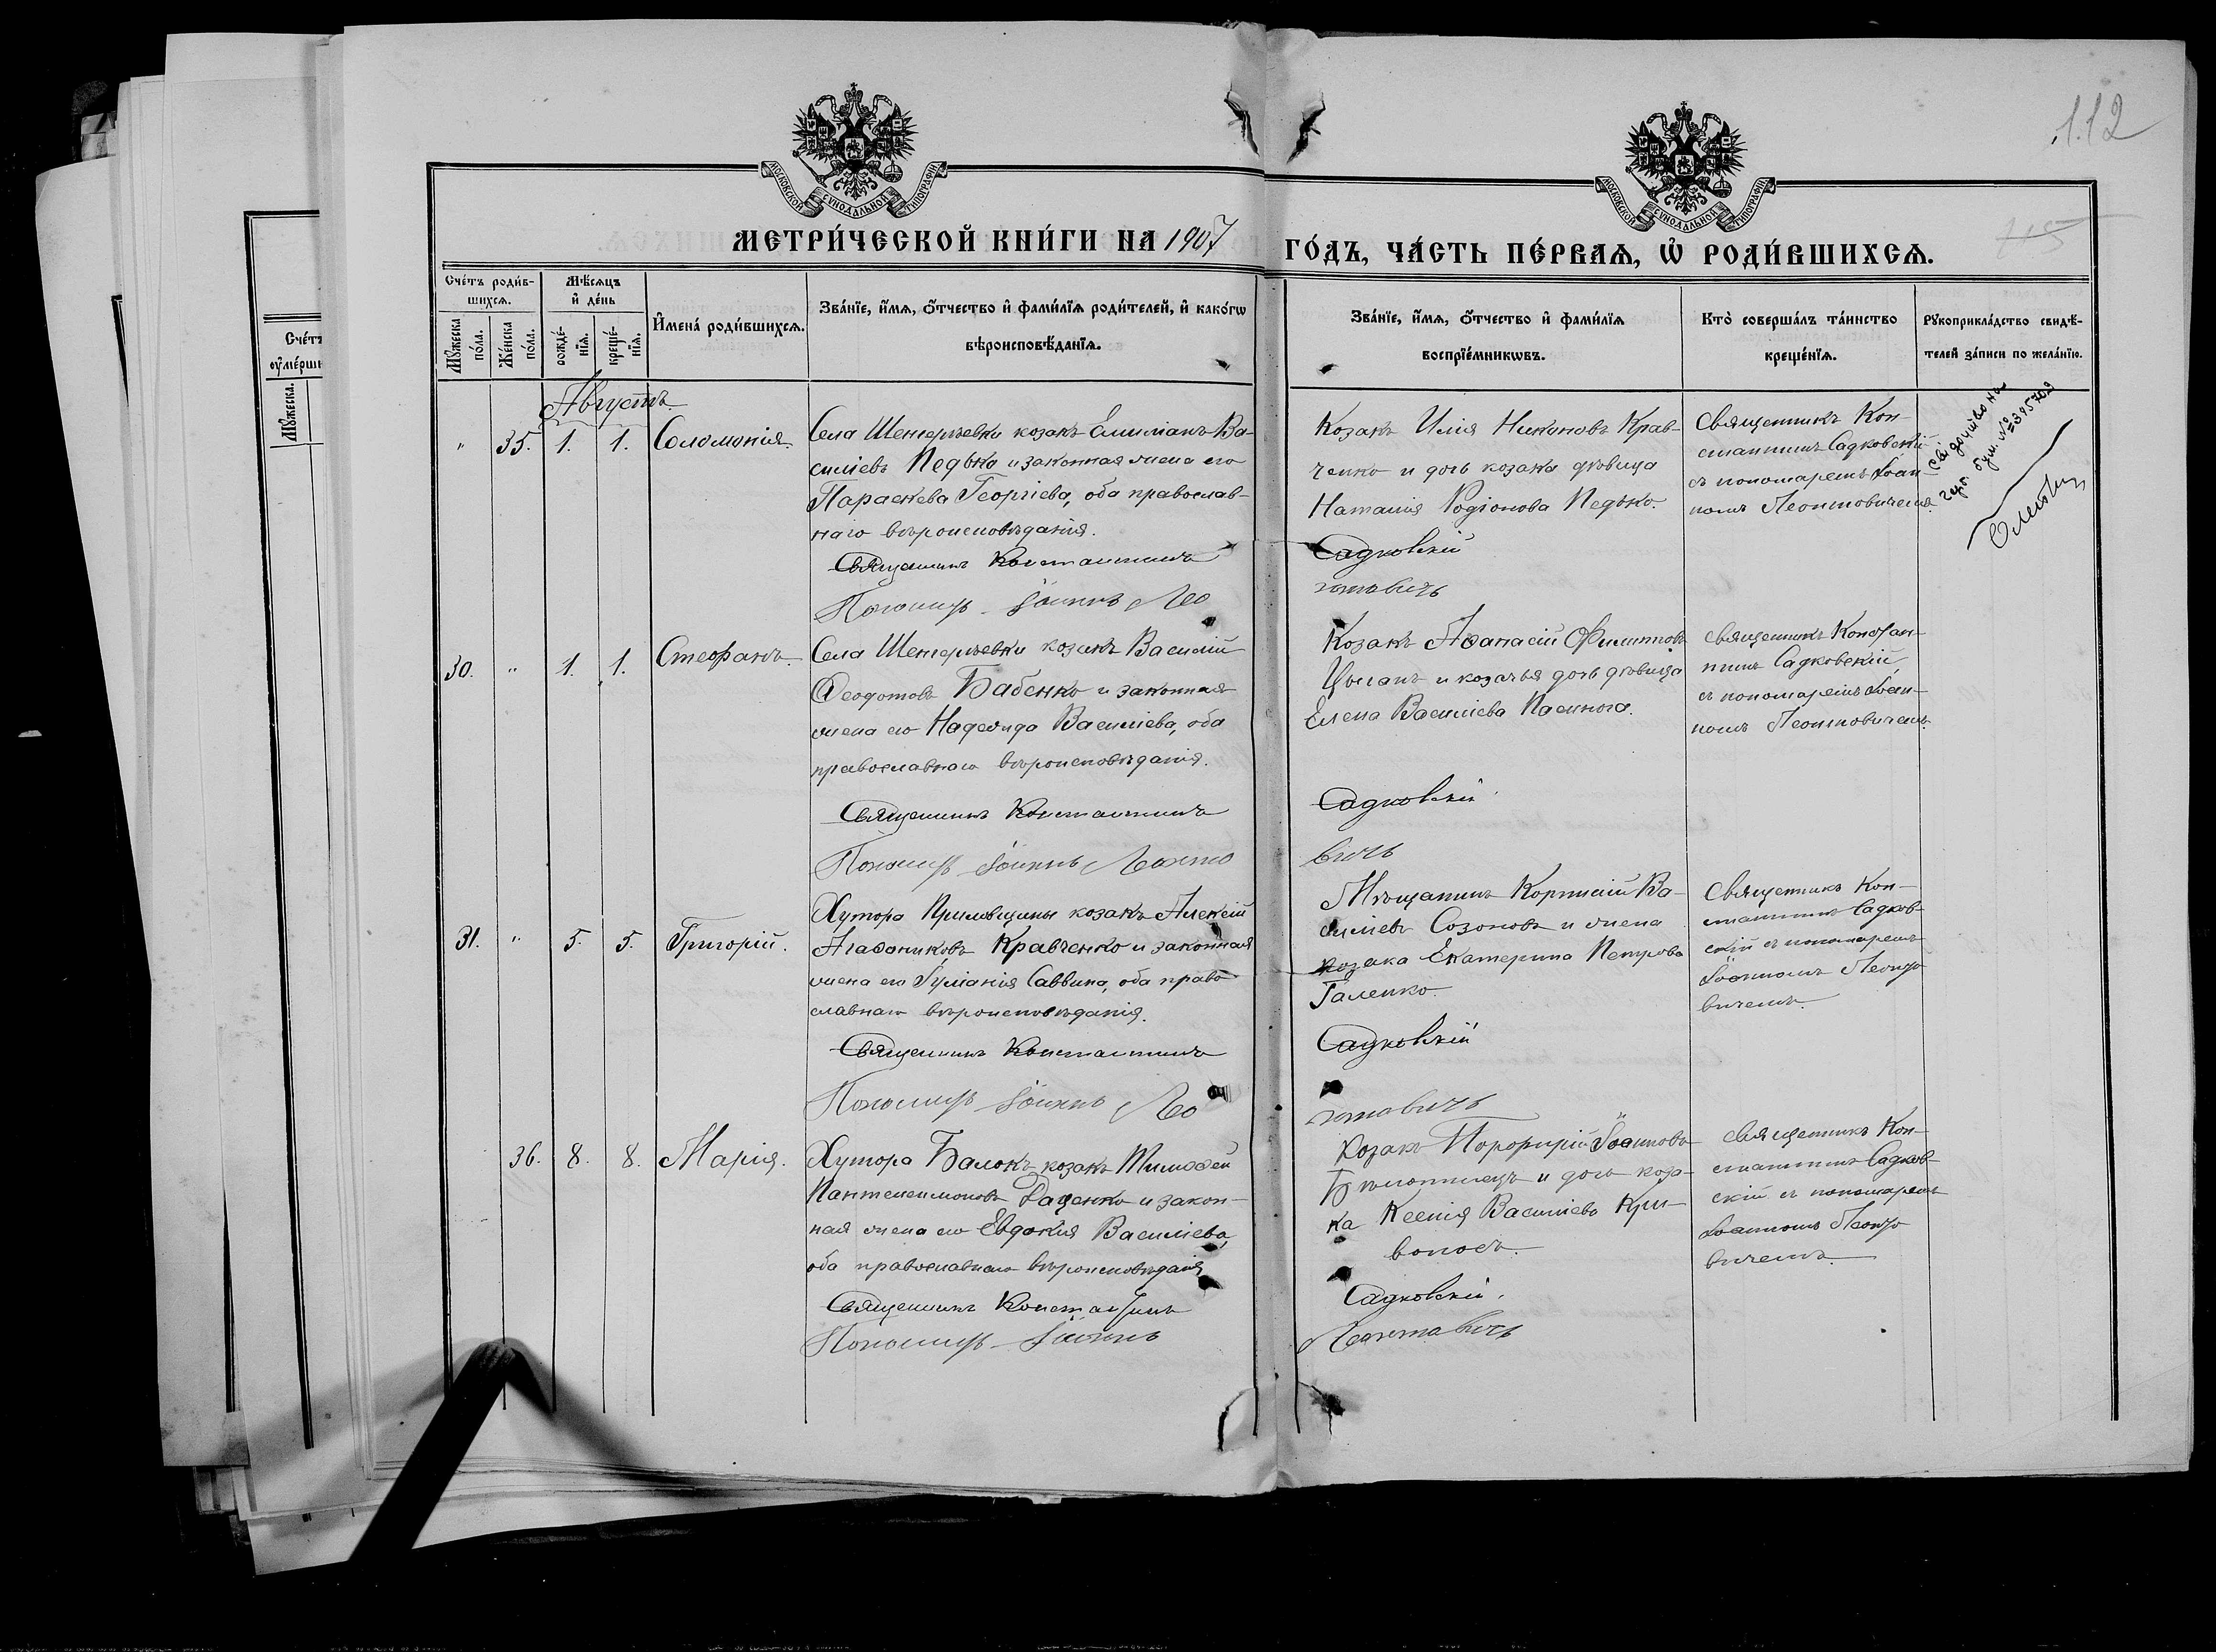 112
115
МОСКОВСКОЙ СѴНОДАЛЬНОЙ ТИПОГРАФІИ
МОСКОВСКОЙ СѴНОДАЛЬНОЙ ТИПОГРАФІИ
МЕТРИ́ЧЕСКОЙ КНИ́ГИ НА 1907
ГО́ДЪ, ЧА́СТЬ ПЕ́РВАѦ, Ѡ҆ РОДИ́ВШИХСѦ.
Сче́тъ роди́в-
шихсѧ.
Мꙋ́жеска по́ла.
Же́нска по́ла.
Мѣ́сѧцъ
и҆ де́нь
рожде́-
нїѧ.
креще́-
нїѧ.
И҆мена̀ роди́вшихсѧ.
Зва́нїе, и҆́мѧ, ѻ҆́тчество и҆ фами́лїѧ роди́телей, и҆ како́гѡ
вѣроисповѣ́данїѧ.
Зва́нїе, и҆́мѧ, ѻ҆́тчество и҆ фами́лїѧ
воспрїе́мникѡвъ.
Кто̀ соверша́лъ та́инство
креще́нїѧ.
Рꙋкоприкла́дство свидѣ́-
телей за́писи по жела́нїю.
Сче́тъ
ᲂу҆ме́рши
Мꙋ́жеска.
Августъ.
" 35. 1. 1. Соломонія.
Села Шенгеръевки козакъ Емиліанъ Ва-
силіевъ Педько и законная жена его
Параскева Георгіева, оба православ-
наго вѣроисповѣданія.
Священникъ Константинъ
Пономарь Іоаннъ Лео
Козакъ Илія Никоновъ Крав-
ченко и дочь козака дѣвица
Наталія Родіонова Педько.
Садковскій
нтовичъ
Священникъ Кон-
стантинъ Садковскій
съ пономаремъ Іоан-
номъ Леонтовичемъ.
Свидоцтво на
герб. бум. № 395702
30. " 1. 1. Стефанъ.
Села Шенгеръевки козакъ Василій
Ѳеодотовъ Бабенко и законная
жена его Надежда Василіева, оба
православнаго вѣроисповѣданія.
Священникъ Константинъ
Пономарь Іоаннъ Леонто
Козакъ Аѳанасій Филипповъ
Цыганъ и козачья дочь дѣвица
Елена Василіева Пасинога.
Садковскій
вичъ
Священникъ Констан-
тинъ Садковскій,
съ пономаремъ Іоан-
номъ Леонтовичемъ.
31. " 5. 5. Григорій.
Хутора Приловщины козакъ Алексій
Агаѳониковъ Кравченко и законная
жена его Іуліанія Саввина, оба право-
славнаго вѣроисповѣданія.
Священникъ Константинъ
Пономарь Іоаннъ Лео
Мѣщанинъ Корнилій Ва-
силіевъ Созоновъ и жена
козака Екатерина Петрова
Галенко.
Садковскій
нтовичъ
Священникъ Кон-
стантинъ Садков-
скій съ пономаремъ
Іоанномъ Леонто
вичемъ.
36. 8. 8. Марія.
Хутора Балокъ козакъ Тимоѳей
Пантелеимоновъ Даценко и закон-
ная жена его Евдокія Василіева,
оба православнаго вѣроисповѣданія
Священникъ Константинъ
Пономарь Іоаннъ
Козакъ Порфирій Іоанновъ
и дочь коза-
ка Ксенія Василіева Кри-
воносъ.
Садковскій.
Леонтовичъ
Священникъ Кон-
стантинъ Садков-
скій съ пономаремъ
Іоанномъ Леонто
вичемъ.